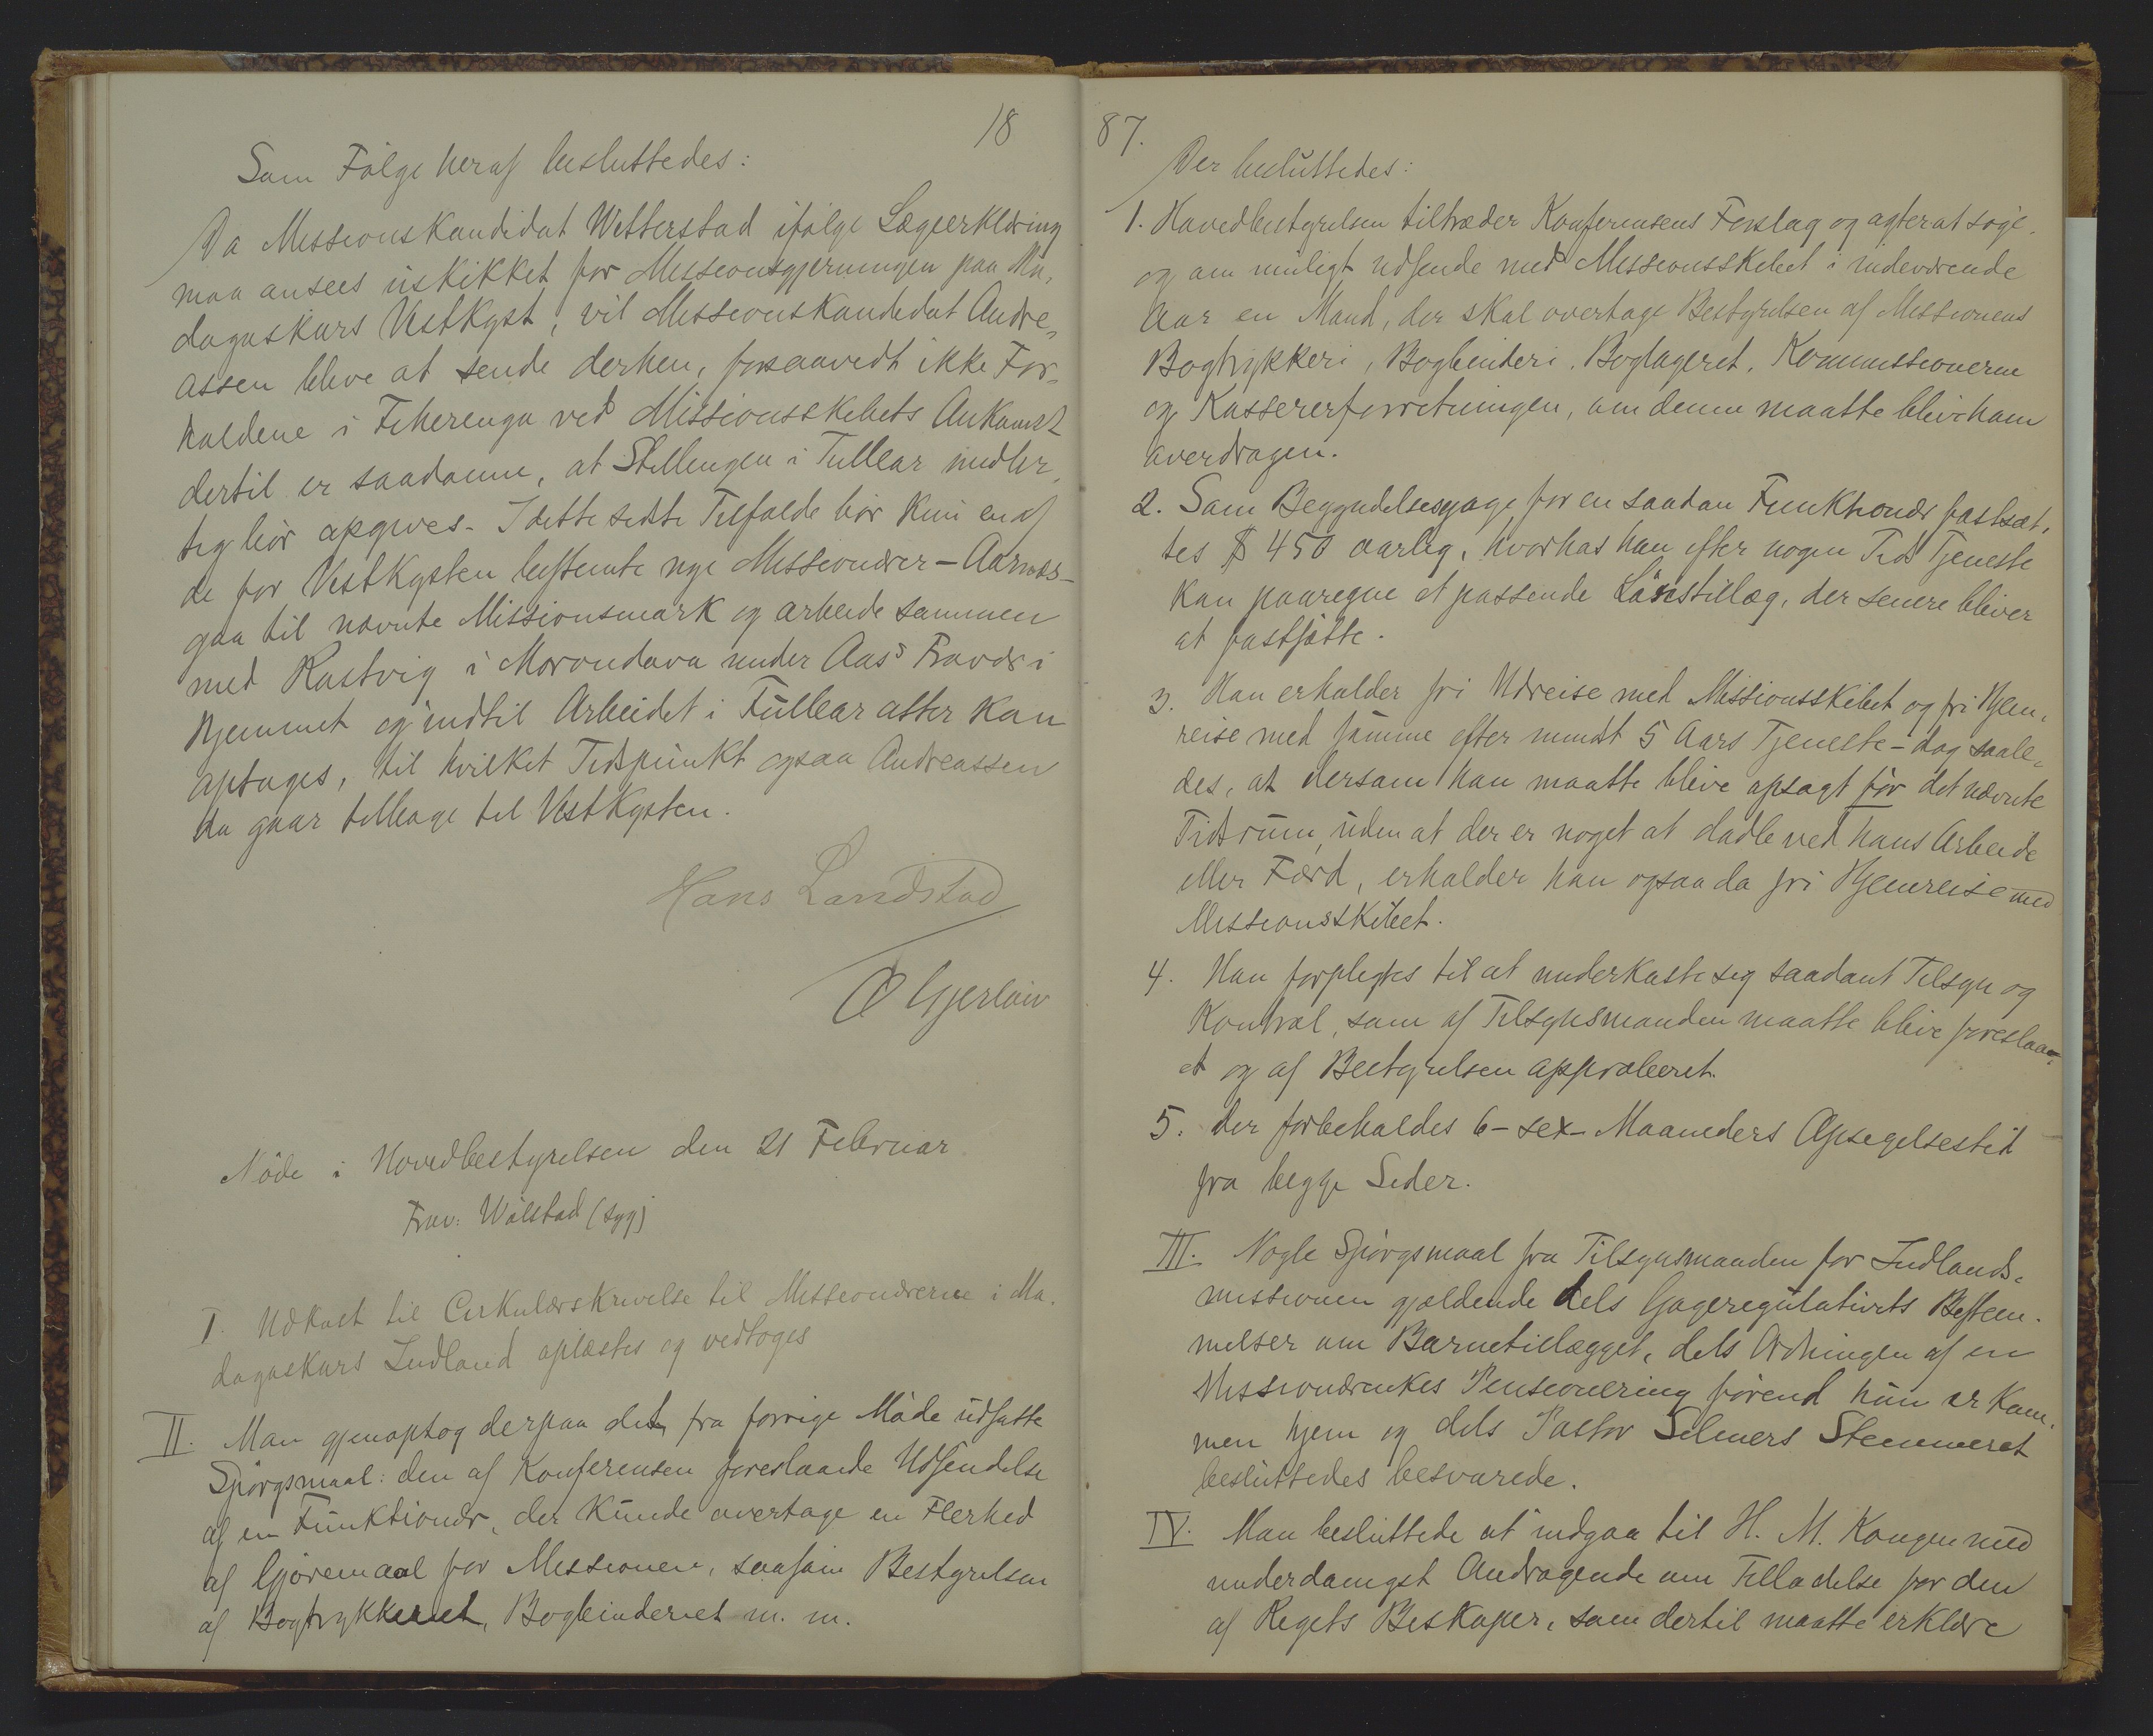 18
Som Følge heraf besluttedes:
Da Missionskandidat Wetterstad ifølge Lægeerklæring
maa ansees uskikket for Missionsgjerningen paa Ma-
dagaskars Vestkyst, vil Missionskandidat Andre-
assen blive at sende derhen, forsaavidt ikke For-
holdene i Fiherenga ved Missionsskibets Ankomst
dertil er saadanne, at Stillingen i Tullear midler-
tig bør opgives. I dette sidste Tilfælde bør kun en af
de for Vestkysten bestemte nye Missionærer – Aarnæs –
gaa til nævnte Missionsmark og arbeide sammen
med Røstvig i Morondava under Aas's Fravær i
Hjemmet og indtil Arbeidet i Tullear atter kan
optages, til hvilket Tidspunkt ogsaa Andreassen
da gaar tilbage til Vestkysten.
Hans Landstad
O Gjerløw
Møde i Hovedbestyrelsen den 21 Februar
Frav: Wålstad (syg)
I. Udkast til Cirkulærskrivelse til Missionærerne i Ma-
dagaskars Indland oplæstes og vedtoges
II. Man gjenoptog derpaa det fra forrige Møde udsatte
Spørgsmaal: den af Konferensen foreslaaede Udsendelse
af en Funktionær, der kunde overtage en Flerhed
af Gjøremaal for Missionen, saasom Bestyrelsen
af Bogtrykkeriet, Bogbinderiet m. m.
87.
Der besluttedes:
1. Hovedbestyrelsen tiltræder Konferensens Forslag og agter at søge
og om muligt udsende med Missionsskibet i indeværende
Aar en Mand, der skal overtage Bestyrelsen af Missionens
Bogtrykkeri, Bogbinderi, Boglageret, Kommissionerne
og Kassererforretningen, om denne maatte blive ham
overdragen.
2. Som Begyndelsesgage for en saadan Funktionær fastsæt-
tes $ 450 aarlig, hvorhos han efter nogen Tids Tjeneste
kan paaregne et passende Lønstillæg, der senere bliver
at fastsætte.
3. Han erholder fri Udreise med Missionsskibet og fri Hjem-
reise med samme efter mindst 5 Aars Tjeneste – dog saale-
des, at dersom han maatte blive opsagt før det nævnte
Tidsrum, uden at der er noget at dadle ved hans Arbeide
eller Færd, erholder han ogsaa da fri Hjemreise med
Missionsskibet.
4. Han forpligtes til at underkaste sig saadant Tilsyn og
Kontrol, som af Tilsynsmanden maatte blive foreslaa-
et og af Bestyrelsen approberet.
5. Der forbeholdes 6 – sex – Maaneders Opsigelsestid
fra begge Sider.
III. Nogle Spørgsmaal fra Tilsynsmanden for Indlands-
missionen gjældende dels Gageregulativets Bestem-
melser om Barnetillægget, dels Ordningen af en
Missionærenkes Pensionering førend hun er kom-
men hjem og dels Pastor Selmers Stemmeret
besluttedes besvarede.
IV. Man besluttede at indgaa til H. M. Kongen med
underdanigst Andragende om Tilladelse for den
af Rigets Biskoper, som dertil maatte erklære